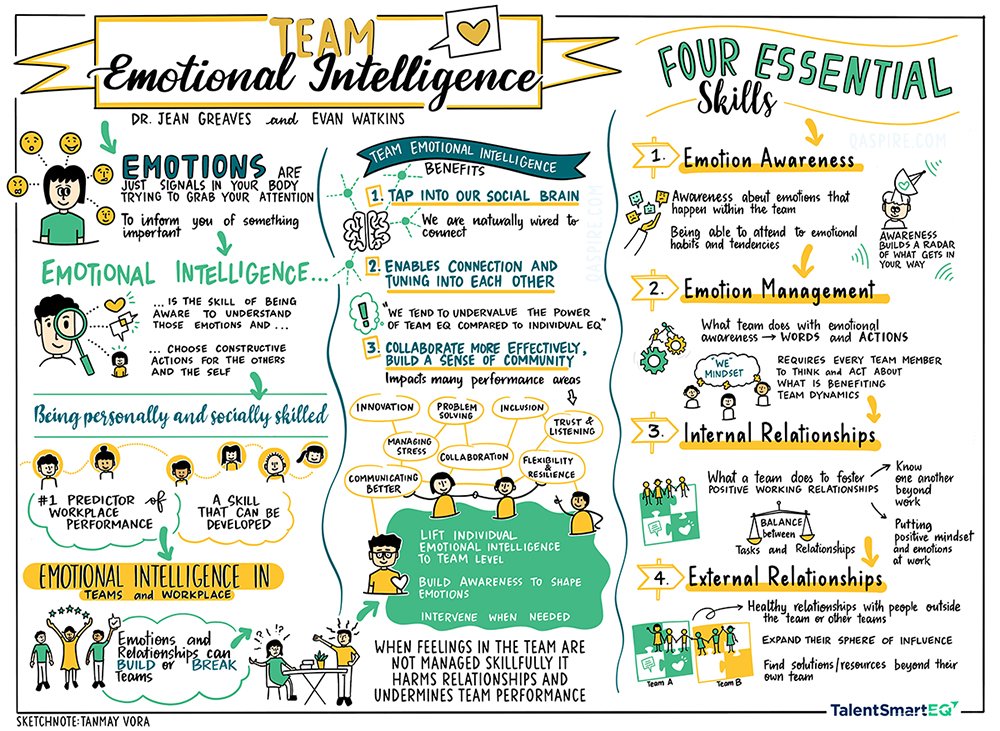 TEAM
Emotional Intelligence
DR. JEAN GREAVES and EVAN WATKINS
EMOTIONS ARE
JUST SIGNALS IN YOUR BODY
TRYING TO GRAB YOUR ATTENTION
To inform you of something
important
EMOTIONAL INTELLIGENCE...
... IS THE SKILL OF BEING
AWARE TO UNDERSTAND
THOSE EMOTIONS AND ...
... CHOOSE CONSTRUCTIVE
ACTIONS FOR THE OTHERS
AND THE SELF
Being personally and socially skilled
#1 PREDICTOR of
WORKPLACE
PERFORMANCE
A SKILL
THAT CAN BE
DEVELOPED
EMOTIONAL INTELLIGENCE IN
TEAMS and WORKPLACE
Emotions and
Relationships can
BUILD or BREAK
Teams
TEAM EMOTIONAL INTELLIGENCE
BENEFITS
1. TAP INTO OUR SOCIAL BRAIN
We are naturally wired to
connect
2. ENABLES CONNECTION AND
TUNING INTO EACH OTHER
"WE TEND TO UNDERVALUE THE POWER
OF TEAM EQ COMPARED TO INDIVIDUAL EQ"
3. COLLABORATE MORE EFFECTIVELY,
BUILD A SENSE OF COMMUNITY
Impacts many performance areas
INNOVATION
PROBLEM
SOLVING
INCLUSION
TRUST &
LISTENING
MANAGING
STRESS
COLLABORATION
FLEXIBILITY
&
RESILIENCE
COMMUNICATING
BETTER
LIFT INDIVIDUAL
EMOTIONAL INTELLIGENCE
TO TEAM LEVEL
BUILD AWARENESS TO SHAPE
EMOTIONS
INTERVENE WHEN NEEDED
WHEN FEELINGS IN THE TEAM ARE
NOT MANAGED SKILLFULLY IT
HARMS RELATIONSHIPS AND
UNDERMINES TEAM PERFORMANCE
FOUR ESSENTIAL
Skills
QASPIRE.COM
QASPIRE.COM
1. Emotion Awareness
Awareness about emotions that
happen within the team
Being able to attend to emotional
habits and tendencies
AWARENESS
BUILDS A RADAR
OF WHAT GETS IN
YOUR WAY
2. Emotion Management
What team does with emotional
awareness → WORDS and ACTIONS
"WE"
MINDSET
REQUIRES EVERY TEAM MEMBER
TO THINK and ACT ABOUT
WHAT IS BENEFITING
TEAM DYNAMICS
3. Internal Relationships
What a team does to foster
POSITIVE WORKING RELATIONSHIPS
Know
one another
beyond
work
Putting
positive mindset
and emotions
at work
BALANCE
between
Tasks and Relationships
4. External Relationships
Healthy relationships with people outside
the team or other teams
EXPAND THEIR SPHERE OF INFLUENCE
Find solutions/resources beyond their
own team
Team A
Team B
SKETCHNOTE: TANMAY VORA
TalentSmartEQ